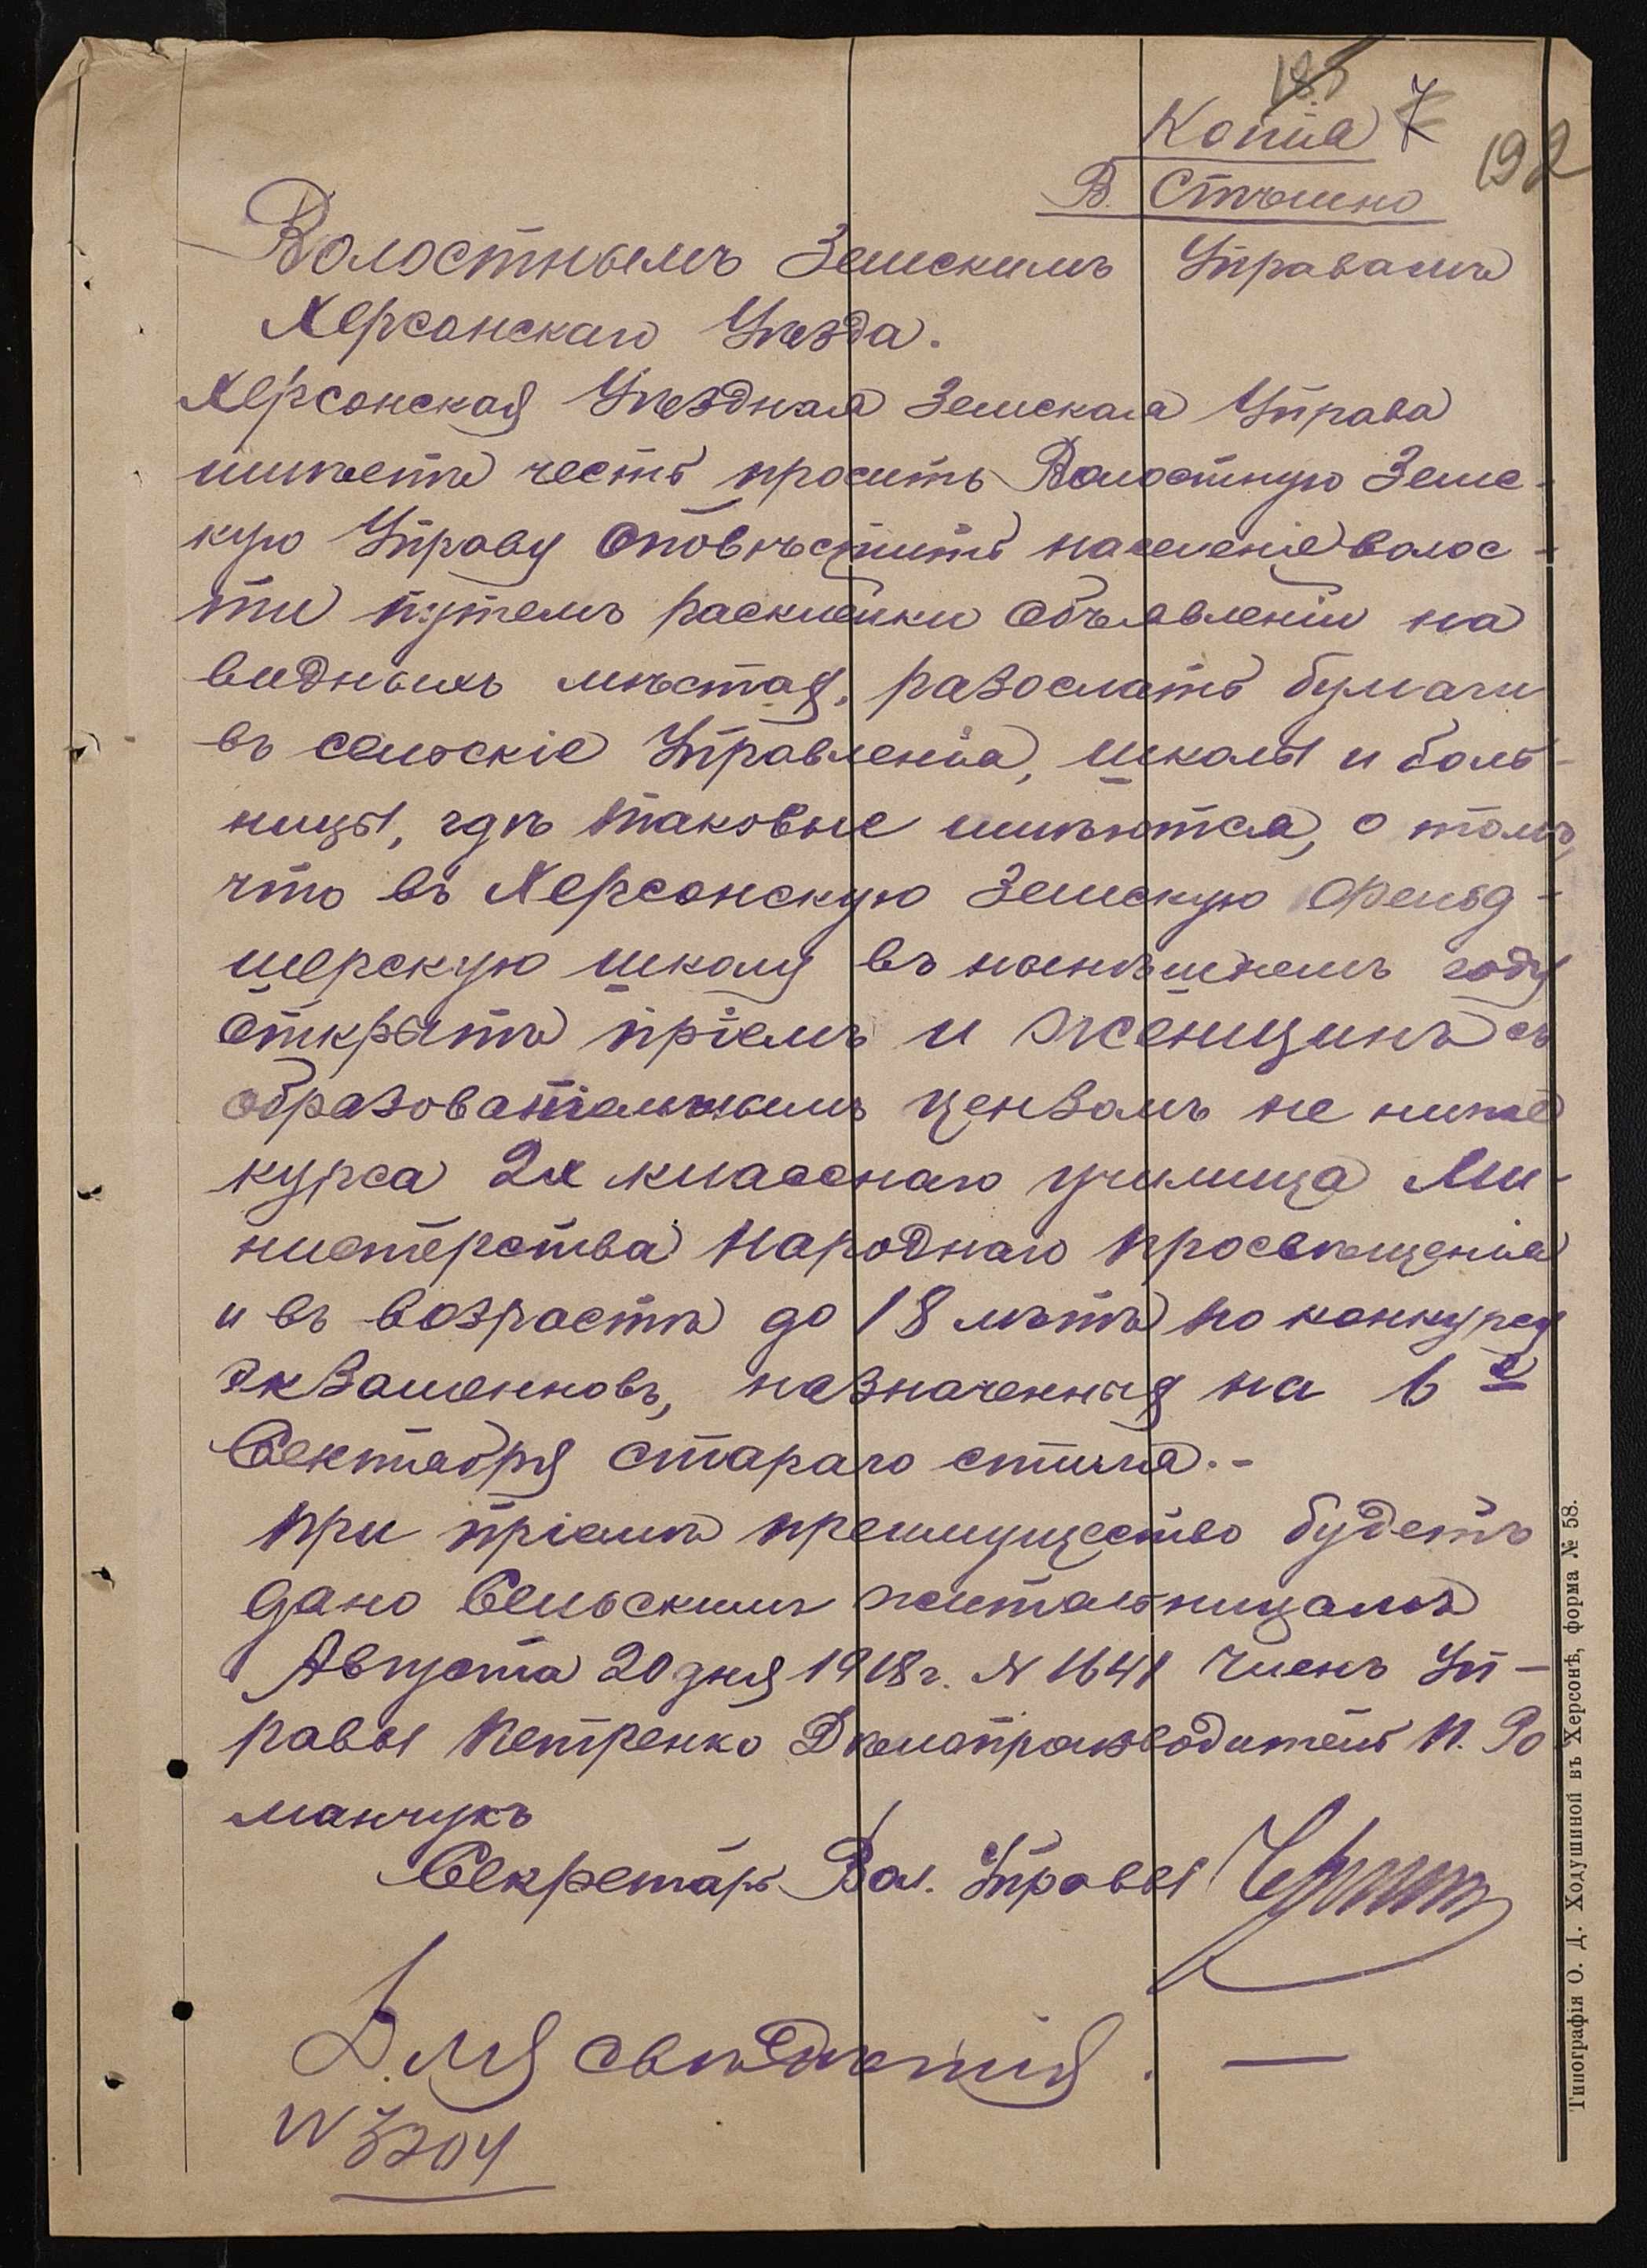 185
Копія
192
В. Спѣшно
Волостнымъ Земскимъ Управамъ
Херсонскаго Уѣзда.
Херсонская Уѣздная Земская Управа
имѣетъ честь просить Волостную Земс-
кую Управу оповѣстить населеніе волос-
ти путемъ расклейки объявленій на
видныхъ мѣстах, разослать бумаги
въ сельскіе Управленія, школы и боль-
ницы, гдѣ таковые имѣются, о томъ,
что въ Херсонскую Земскую Фельд-
шерскую школу въ нынѣшнемъ году
открытъ пріемъ и женщинъ съ
образовательнымъ цензомъ не ниже
курса 2х класснаго училища Ми-
нистерства Народнаго просвѣщенія
и въ возрастѣ до 18 лѣтъ по конкурсу
экзаменновъ, назначенных на 6е
Сентября стараго стиля.-
при пріемѣ преимущество будетъ
дано Сельскимъ жительницамъ
Августа 20 дня 1918 г. № 1641 Членъ Уп-
равы Петренко Дѣлопроизводитель П. Ро
манчукъ
Секретарь Вол. Управы
Для свѣдѣнія. —
№ 3204
Типографія О. Д. Ходушиной въ Херсонѣ, форма № 58.